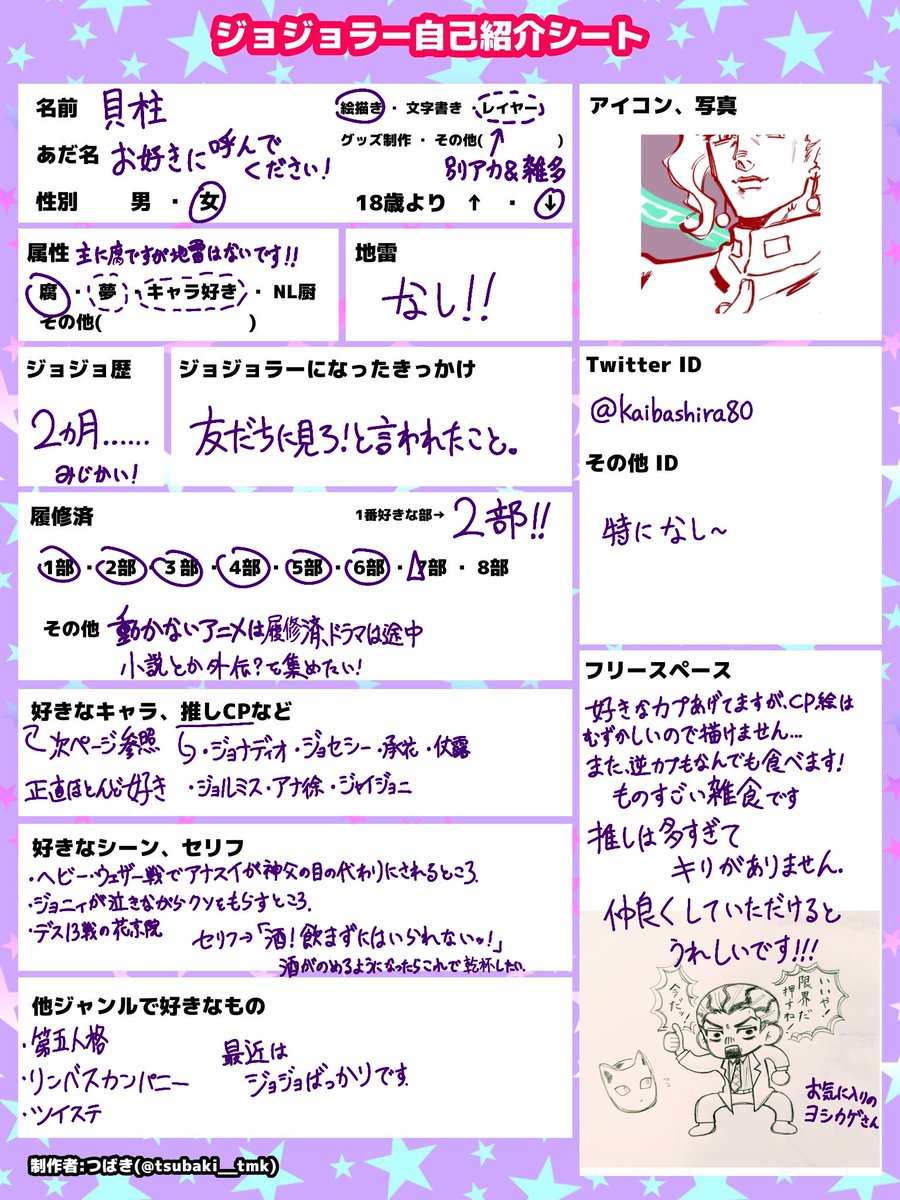 ジョジョラー自己紹介シート
名前 貝柱
絵描き・文字書き・レイヤー
グッズ制作・その他( )
別アカ&雑多
あだ名 お好きに呼んで
ください!
性別 男・女
18歳より ↑・↓
属性 主に腐ですが地雷はないです!!
腐・夢・キャラ好き・NL厨
その他( )
地雷
なし!!
ジョジョ歴
2カ月……
みじかい!
ジョジョラーになったきっかけ
友だちに見ろ!と言われたこと。
履修済
1番好きな部→ 2部!!
1部・2部・3部・4部・5部・6部・7部・8部
その他 動かないアニメは履修済、ドラマは途中
小説とか外伝?も集めたい!
好きなキャラ、推しCPなど
次ページ参照
・ジョナディオ・ジョセシー・承花・仗露
正直ほとんど好き
・ジョルミス・アナ徐・ジャイジョニ
好きなシーン、セリフ
・ヘビー・ウェザー戦でアナスイが神父の目の代わりにされるところ。
・ジョニィが泣きながらクソをもらすところ。
・デス13戦の花京院
セリフ→「酒!飲まずにはいられないッ!」
酒がのめるようになったらこれで乾杯したい。
他ジャンルで好きなもの
・第五人格
・リンバスカンパニー
・ツイステ
最近は
ジョジョばっかりです
アイコン、写真
Twitter ID
@kaibashira80
その他 ID
特になし~
フリースペース
好きなカプあげてますが、CP絵は
むずかしいので描けません…
また、逆カプもなんでも食べます!
ものすごい雑食です
推しは多すぎて
キリがありません.
仲良くしていただけると
うれしいです!!!
いいや!
限界だ
押すね!
今だッ!
お気に入りの
ヨシカゲさん
制作者:つばき(@tsubaki__tmk)